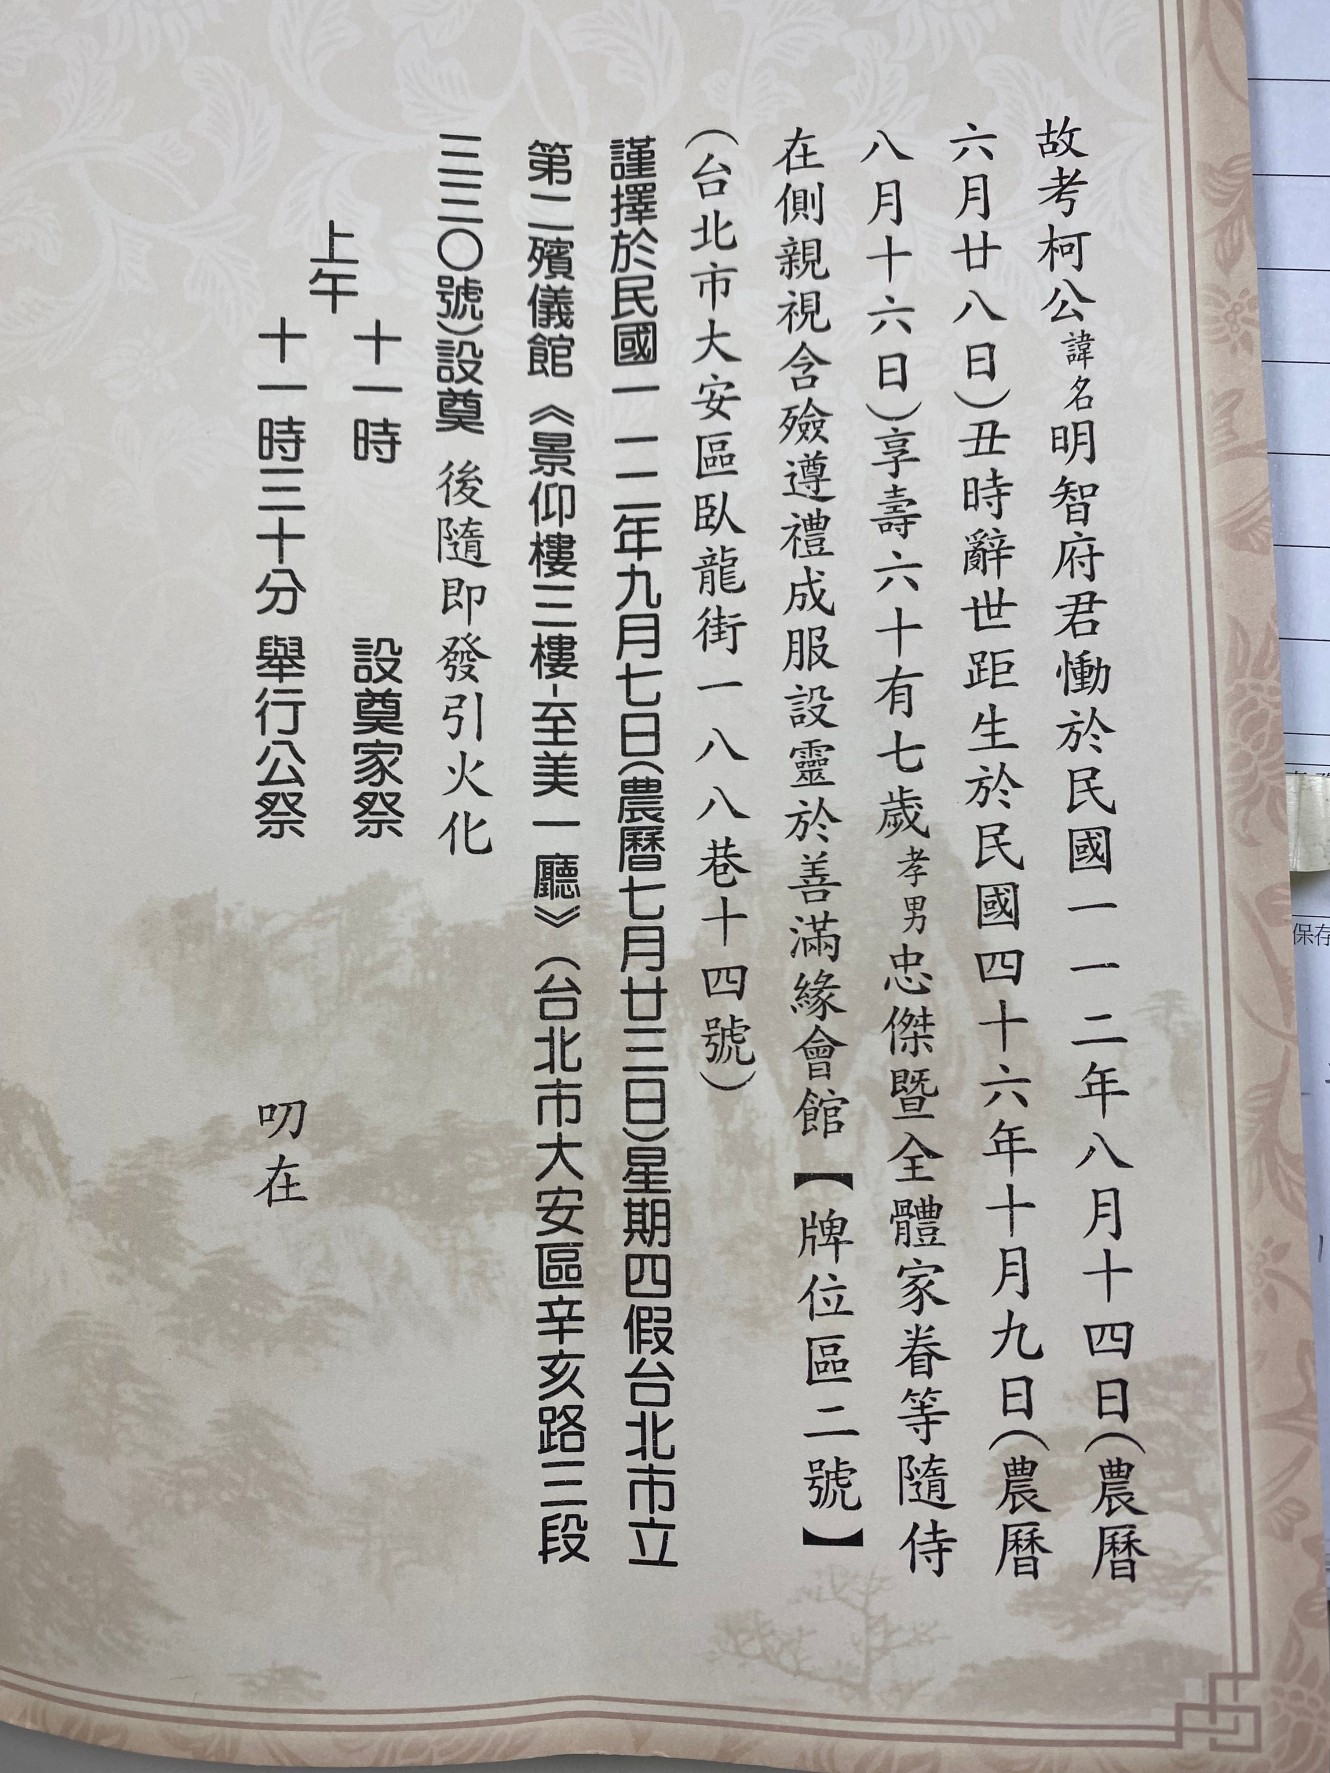 故考柯公諱名明智府君慟於民國一一二年八月十四日(農曆
六月廿八日)丑時辭世距生於民國四十六年十月九日(農曆
八月十六日)享壽六十有七歲孝男忠傑暨全體家眷等隨侍
在側親視含殮遵禮成服設靈於善滿緣會館【牌位區二號】
(台北市大安區臥龍街一八八巷十四號)
謹擇於民國一一二年九月七日(農曆七月廿三日)星期四假台北市立
第二殯儀館《景仰樓三樓-至美一廳》(台北市大安區辛亥路三段
三三〇號)設奠 後隨即發引火化
上午
十一時 設奠家祭
十一時三十分 舉行公祭
叨在
保存